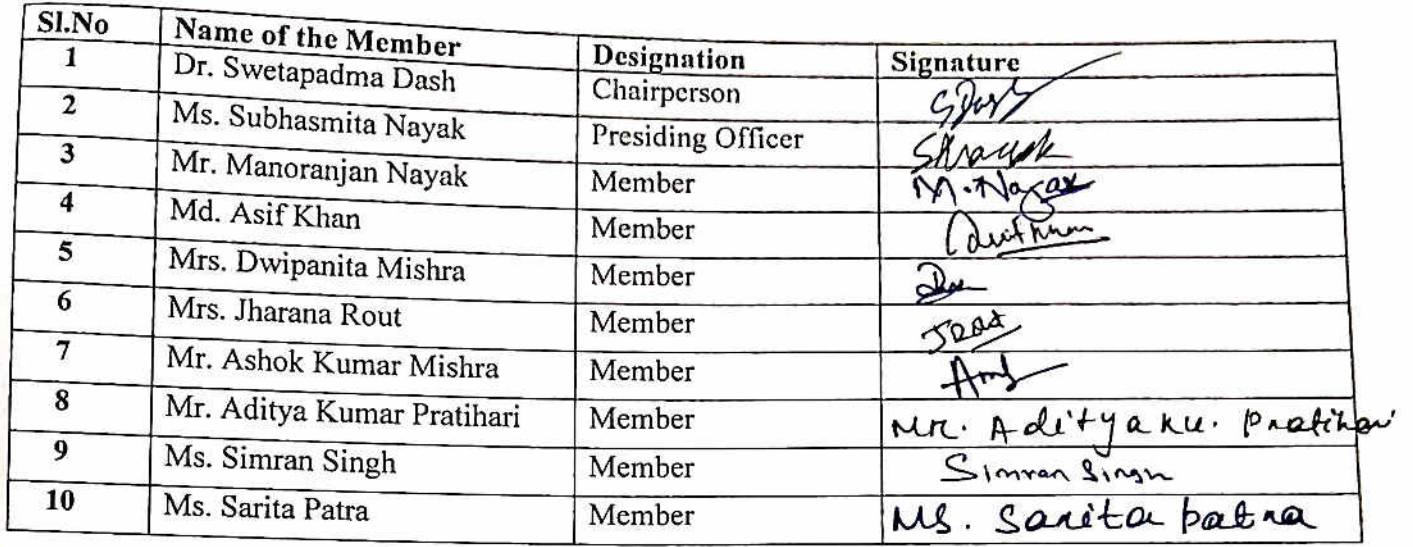 Sl.No Name of the Member Designation Signature
1 Dr. Swetapadma Dash Chairperson SDash
2 Ms. Subhasmita Nayak Presiding Officer SNayak
3 Mr. Manoranjan Nayak Member M. Nayak
4 Md. Asif Khan Member Asif Khan
5 Mrs. Dwipanita Mishra Member
6 Mrs. Jharana Rout Member JRout
7 Mr. Ashok Kumar Mishra Member
8 Mr. Aditya Kumar Pratihari Member Mr. Aditya ku. Pratihari
9 Ms. Simran Singh Member Simran Singh
10 Ms. Sarita Patra Member Ms. Sarita patra